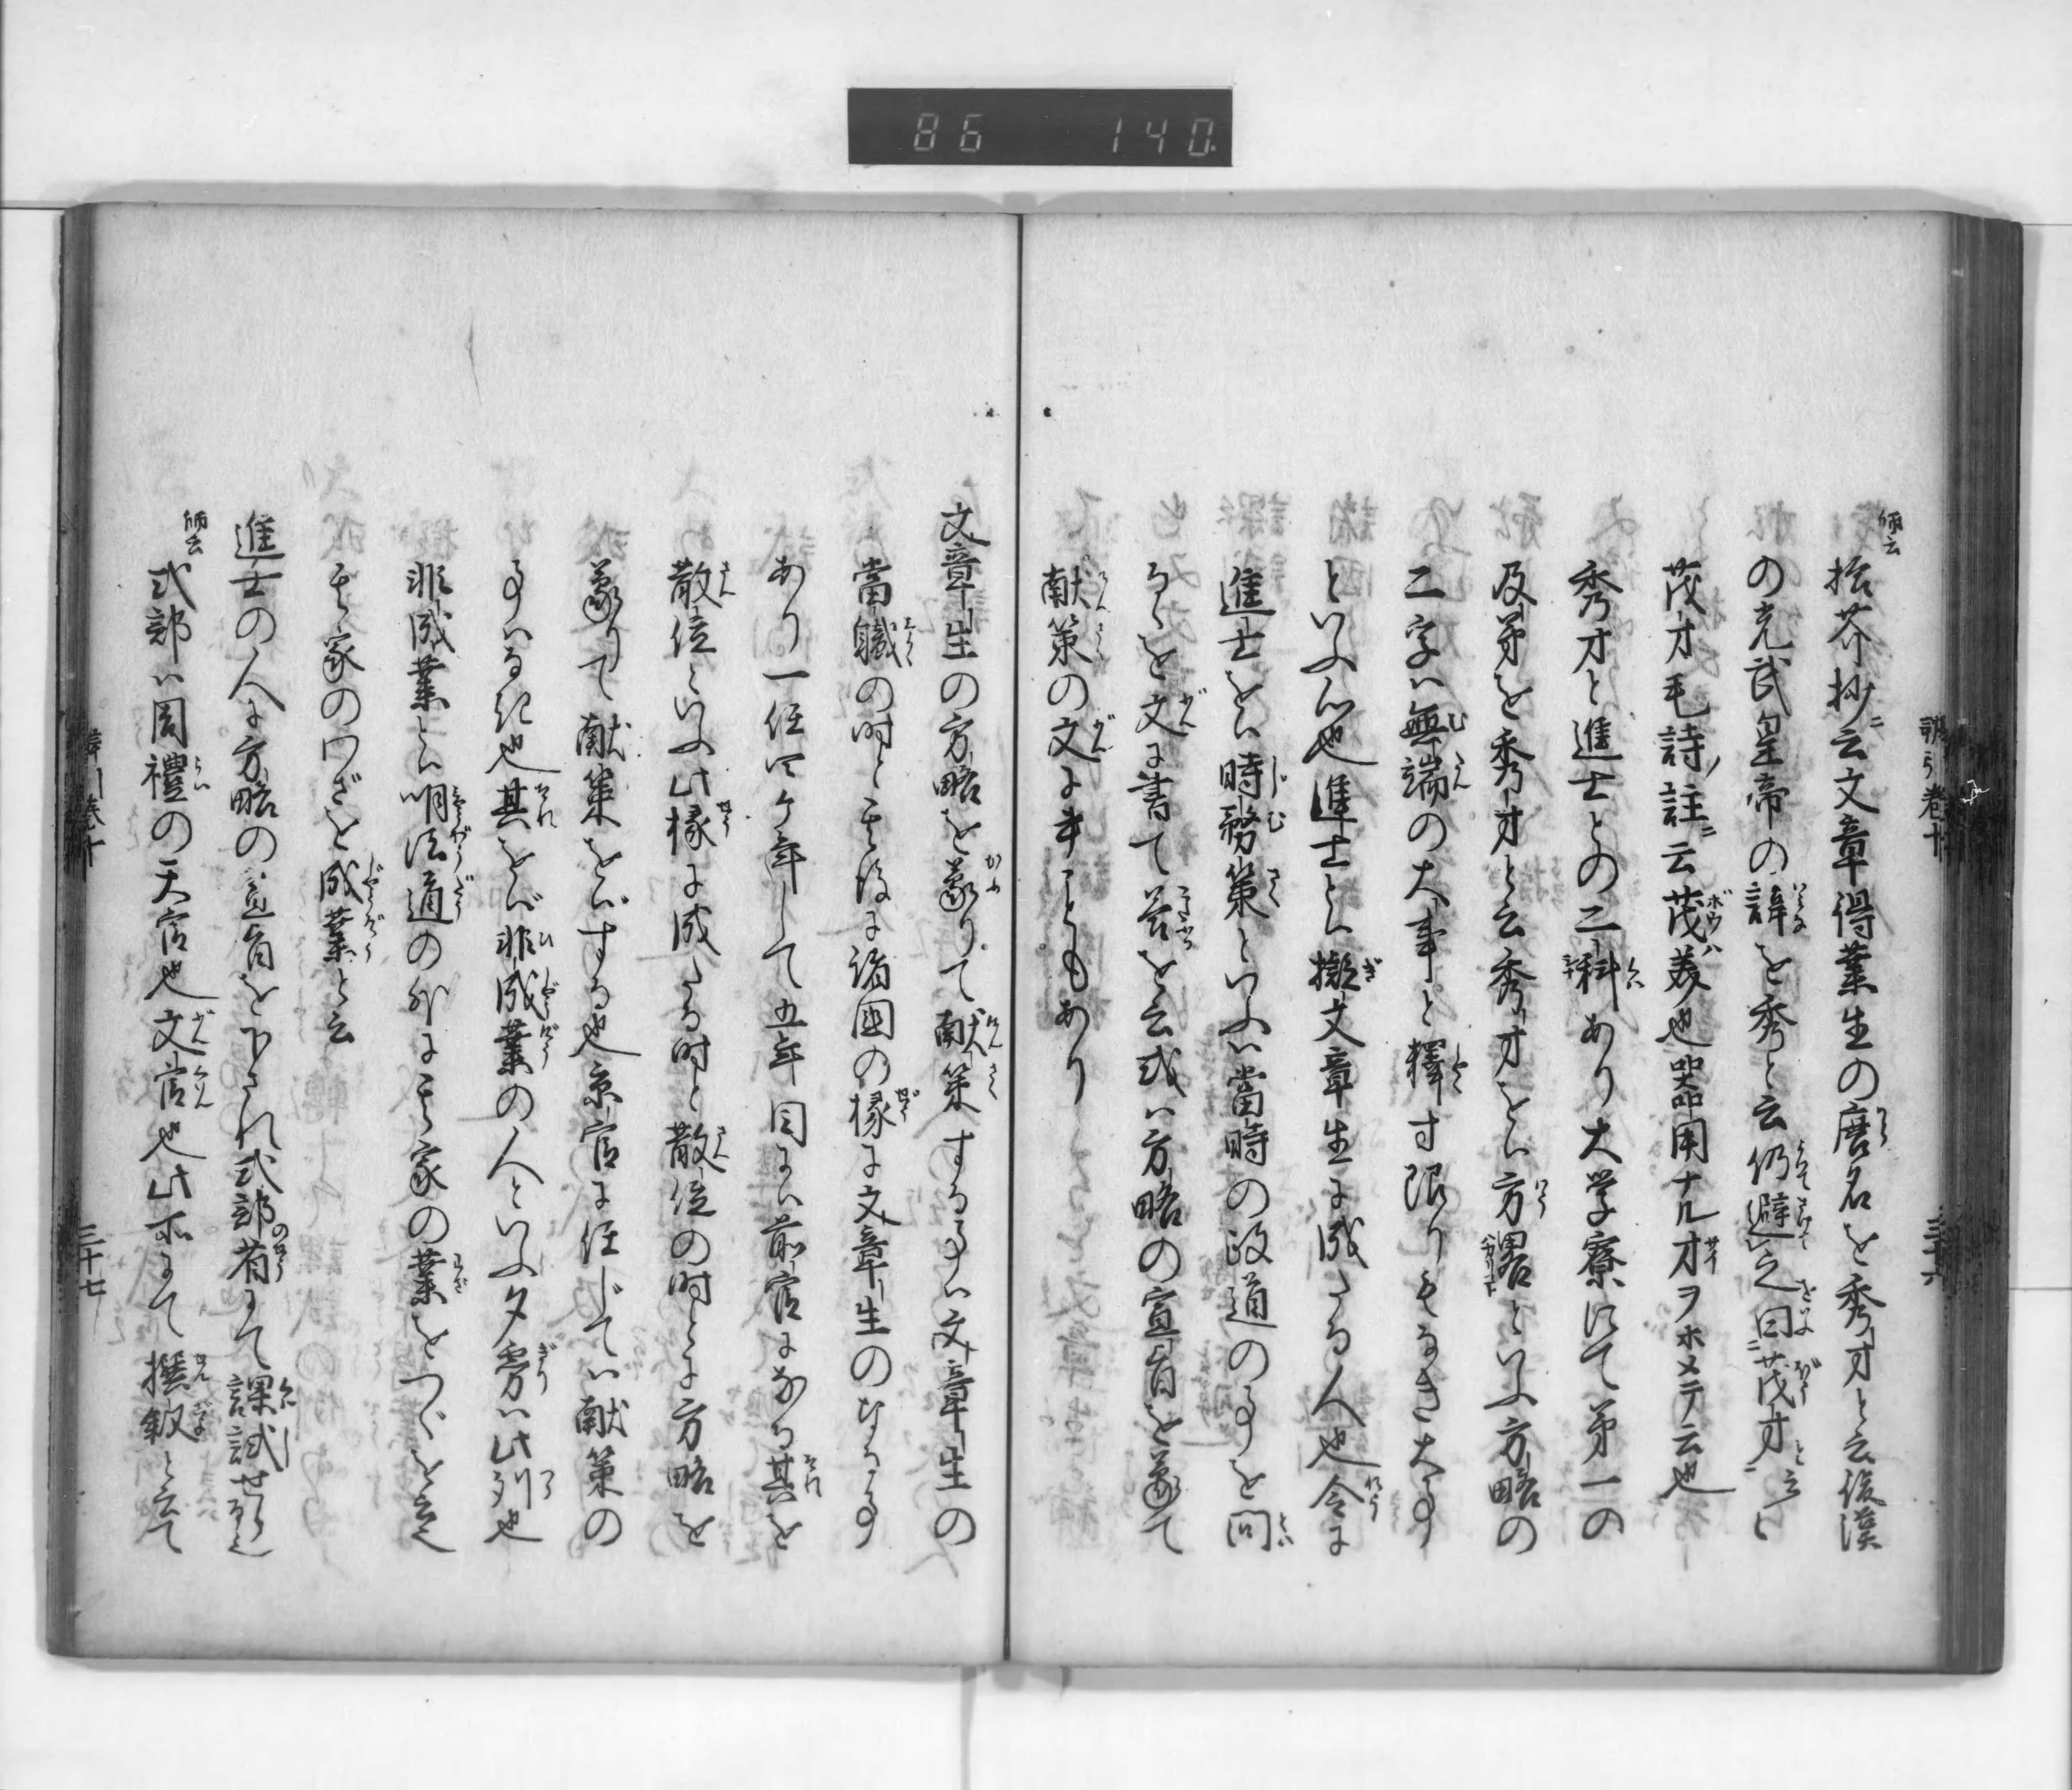 86 140.
師云
拾芥抄ニ云文章得業生の唐名を秀才と云後漢
の光武皇帝の諱を秀と云仍避之曰茂才と云〻
茂才毛詩ノ註ニ云茂ハ美也器用ナル才ヲホメテ云也
秀才と進士との二科あり大学寮にて第一の
及第を秀才と云秀才をハ方畧といふ方略の
二字ハ無端の大事と釋す限りもなき大事
といふ心也進士とハ擬文章生に成たる人也令に
進士をハ時務策といふハ當時の政道の事を問
るゝを文に書て答を云或ハ方略の宣旨を蒙て
献策の文に事ともあり
文章生の方略を蒙りて献策する事ハ文章生の
當職の時と其後に諸國の掾に文章生のなる事
あり一任四ケ年して五年目にハ前官になる其を
散位といふ此掾に成たる時と散位の時とに方略を
蒙りて献策をバする也京官に任じてハ献策の
事ハなき也其をバ非成業の人といふ夕霧ハ此列也
非成業とハ明法道の外に其家の業をつぐを云
其家のわざを成業と云
進士の人に方略の宣旨を下され式部省にて課試せらるゝ也
師云
式部ハ周禮の天官也文官也此所にて撰叙と云て
三十七